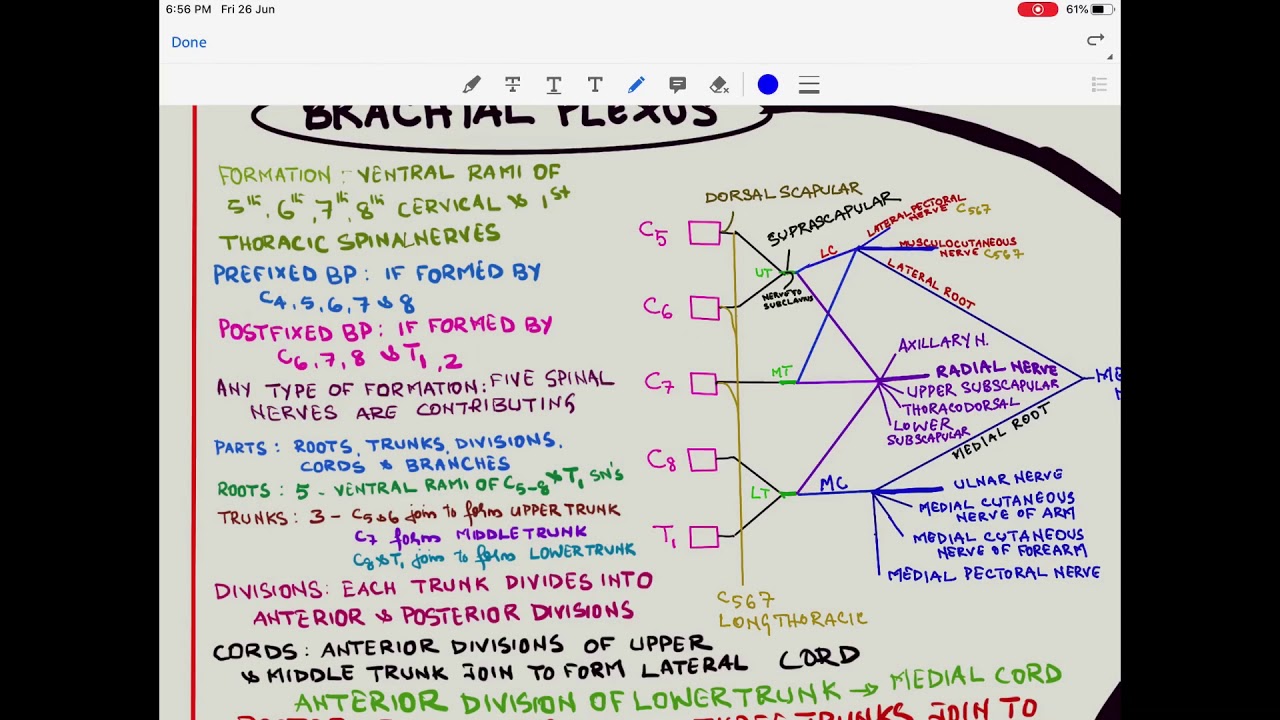 6:56 PM Fri 26 Jun
61%
Done
BRACHIAL PLEXUS
FORMATION: VENTRAL RAMI OF
5th, 6th, 7th, 8th CERVICAL & 1st
THORACIC SPINAL NERVES
PREFIXED BP: IF FORMED BY
C4, 5, 6, 7 & 8
POSTFIXED BP: IF FORMED BY
C6, 7, 8 & T1, 2
ANY TYPE OF FORMATION: FIVE SPINAL
NERVES ARE CONTRIBUTING
PARTS: ROOTS, TRUNKS, DIVISIONS,
CORDS & BRANCHES
ROOTS: 5 - VENTRAL RAMI OF C5-8 & T1 SN'S
TRUNKS: 3 - C5&6 join to form UPPER TRUNK
C7 forms MIDDLE TRUNK
C8 & T1 join to form LOWER TRUNK
DIVISIONS: EACH TRUNK DIVIDES INTO
ANTERIOR & POSTERIOR DIVISIONS
CORDS: ANTERIOR DIVISIONS OF UPPER
& MIDDLE TRUNK JOIN TO FORM LATERAL CORD
ANTERIOR DIVISION OF LOWER TRUNK → MEDIAL CORD
THREE TRUNKS JOIN TO
DORSAL SCAPULAR
SUPRASCAPULAR
LATERAL PECTORAL
NERVE C567
C5
UT
LC
MUSCULOCUTANEOUS
NERVE C567
NERVE TO
SUBCLAVIUS
LATERAL ROOT
C6
AXILLARY N.
C7
MT
RADIAL NERVE
UPPER SUBSCAPULAR
THORACODORSAL
LOWER
SUBSCAPULAR
MEDIAL ROOT
C8
LT
MC
ULNAR NERVE
MEDIAL CUTANEOUS
NERVE OF ARM
T1
MEDIAL CUTANEOUS
NERVE OF FOREARM
MEDIAL PECTORAL NERVE
C567
LONG THORACIC